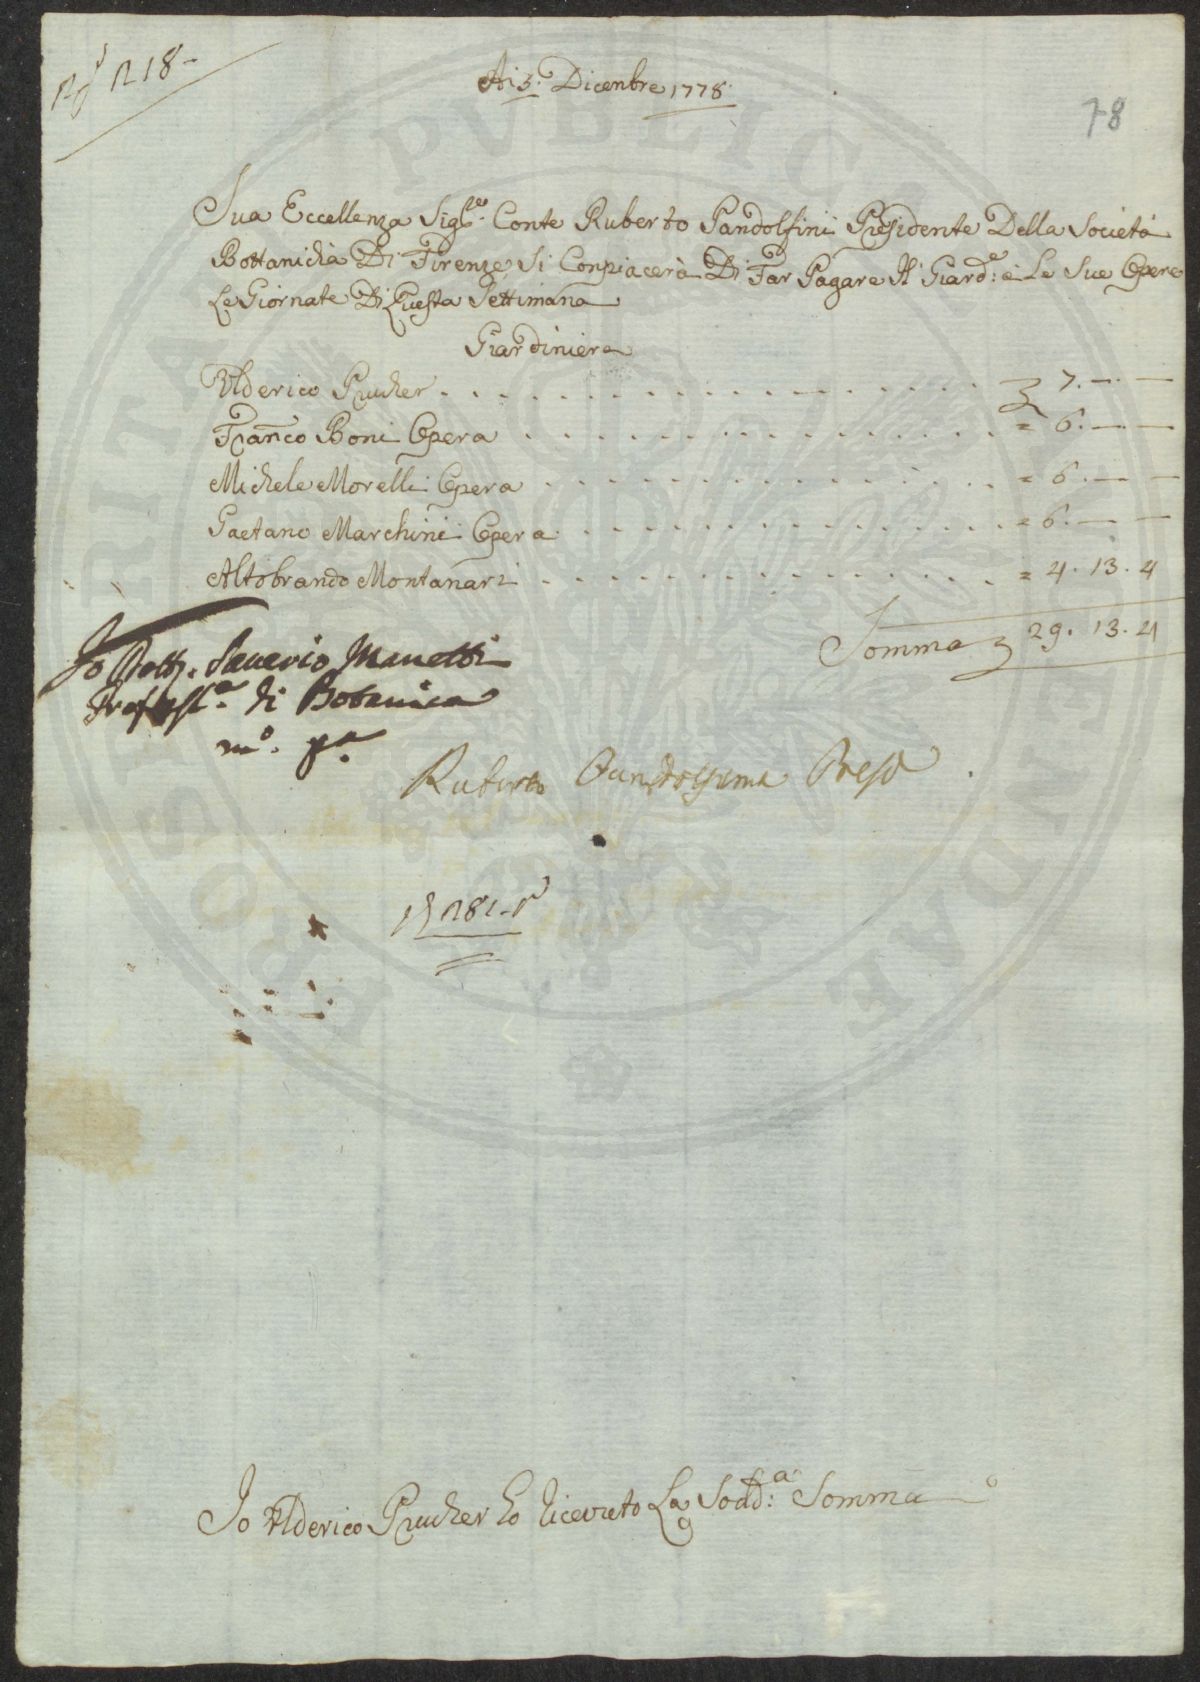 218
Ai 5. Dicembre 1778
78
Sua Eccellenza Sigl.re Conte Ruberto Pandolfini Presidente Della Società
Bottanicha Di Firenze Si Conpiacerà Di Far Pagare Il Giard.e e Le Sue Opere
Le Giornate Di Questa Settimana
Giardiniere
Ulderico Prucher . . . . . . . . . . 7. — —
Franco Boni Opera . . . . . . . . . . = 6. — —
Michele Morelli Opera . . . . . . . . . . = 6. — —
Gaetano Marchini Opera . . . . . . . . . . = 6. — —
Altobrando Montanari . . . . . . . . . . = 4. 13. 4
Somma 29. 13. 4
Io Dott. Saverio Manetti
Profess.e di Botanica
m.o p.a
Ruberto Pandolfini Presid
281
Io Ulderico Prucher ho riceuto La Sodd.a Somma
PROPRIETA PUBLIC